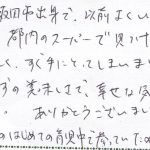 飯田市出身で、以前よくい
都内のスーパーで見つけ
く、すぐ手にとってしまいま
ずの美味しさで、幸せな気
ありがとうございまし
のはじめての育児中で落ち